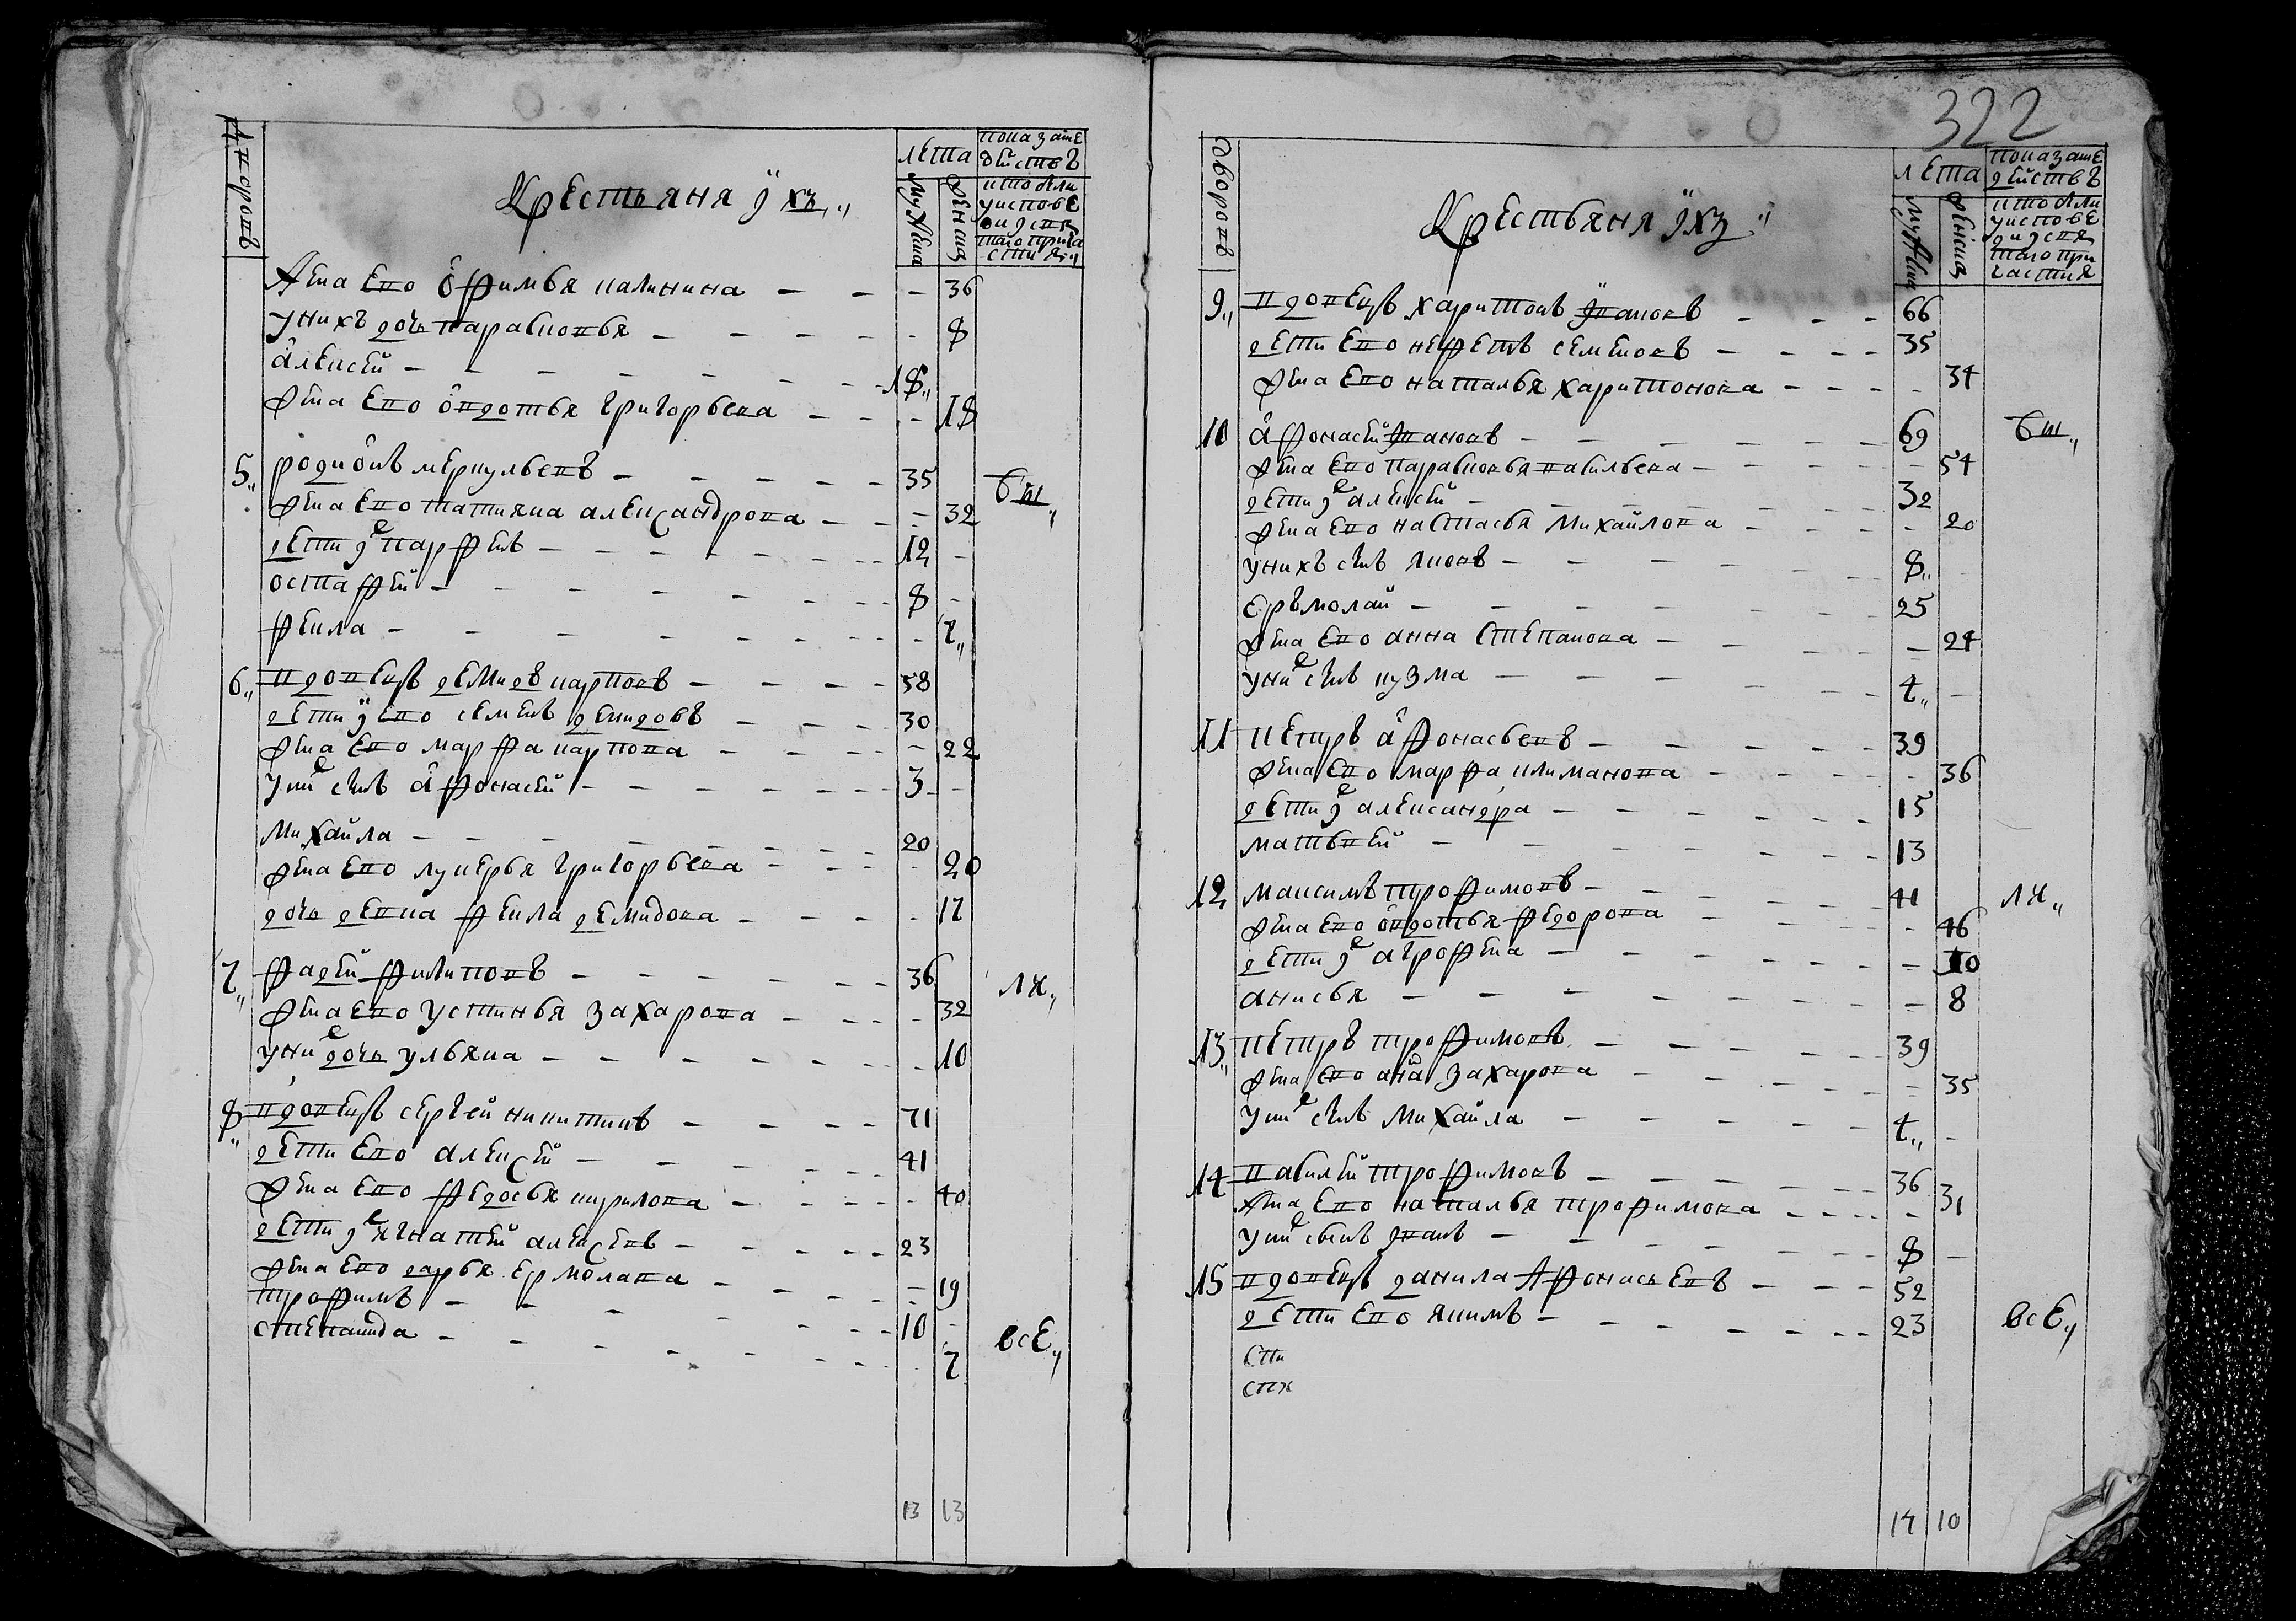 дворовъ
Крестьяня и их
лета
мужеска
женска
показание
действъ
кто были
у исповеди и у святаго причастия
жена ево Офимья калинина - 36
у них дочь парасковья - 8
алексей - 18
жена ево овдотья григорьева - 18
5 родионъ меркульевъ - 35 бы
жена ево татияна александрова - 32
дети их парфенъ - 12
остафей - 8
фекла - 7
6 вдовецъ демидъ карповъ - 58
дети ево семенъ демидовъ - 30
жена ево марфа карпова - 22
у них сынъ афонасей - 3
михайла - 20
жена ево лукерья григорьева - 20
дочь девка фекла демидова - 17
7 фадей филиповъ - 36 ли
жена ево устинья захарова - 32
у них дочь ульяна - 10
8 вдовецъ сергей никитинъ - 71
дети ево алексей - 41
жена ево федосья кирилова - 40
дети их игнатей алексевъ - 23
жена ево дарья ермолава - 19
трофимъ - 10
степанида - 7 все
13 13
322
дворовъ
Крестьяня их
лета
мужеска
женска
показание
действъ
кто были
у исповеди и у святаго причастия
9 вдовецъ харитонъ ивановъ - 66
дети ево нефетъ семеновъ - 35
жена ево наталья харитонова - 34
10 афонасей ивановъ - 69 бы
жена ево парасковья васильева - 54
дети их алексей - 32
жена ево настасья михайлова - 20
у нихъ сынъ яковъ - 8
еръмолай - 25
жена ево анна степанова - 24
у них сынъ кузма - 4
11 петръ афонасьевъ - 39
жена ево марфа климанова - 36
дети их александра - 15
матвей - 13
12 максимъ трофимовъ - 41 ли
жена ево овдотья федорова - 46
дети их агрофена - 10
анисья - 8
13 петръ трофимовъ - 39
жена ево анна захарова - 35
у них сынъ михайла - 4
14 василей трофимовъ - 36
жена ево наталья трофимова - 31
у них сынъ иванъ - 8
15 вдовецъ данила Афонасьевъ - 52
дети ево якимъ - 23 все
14 10